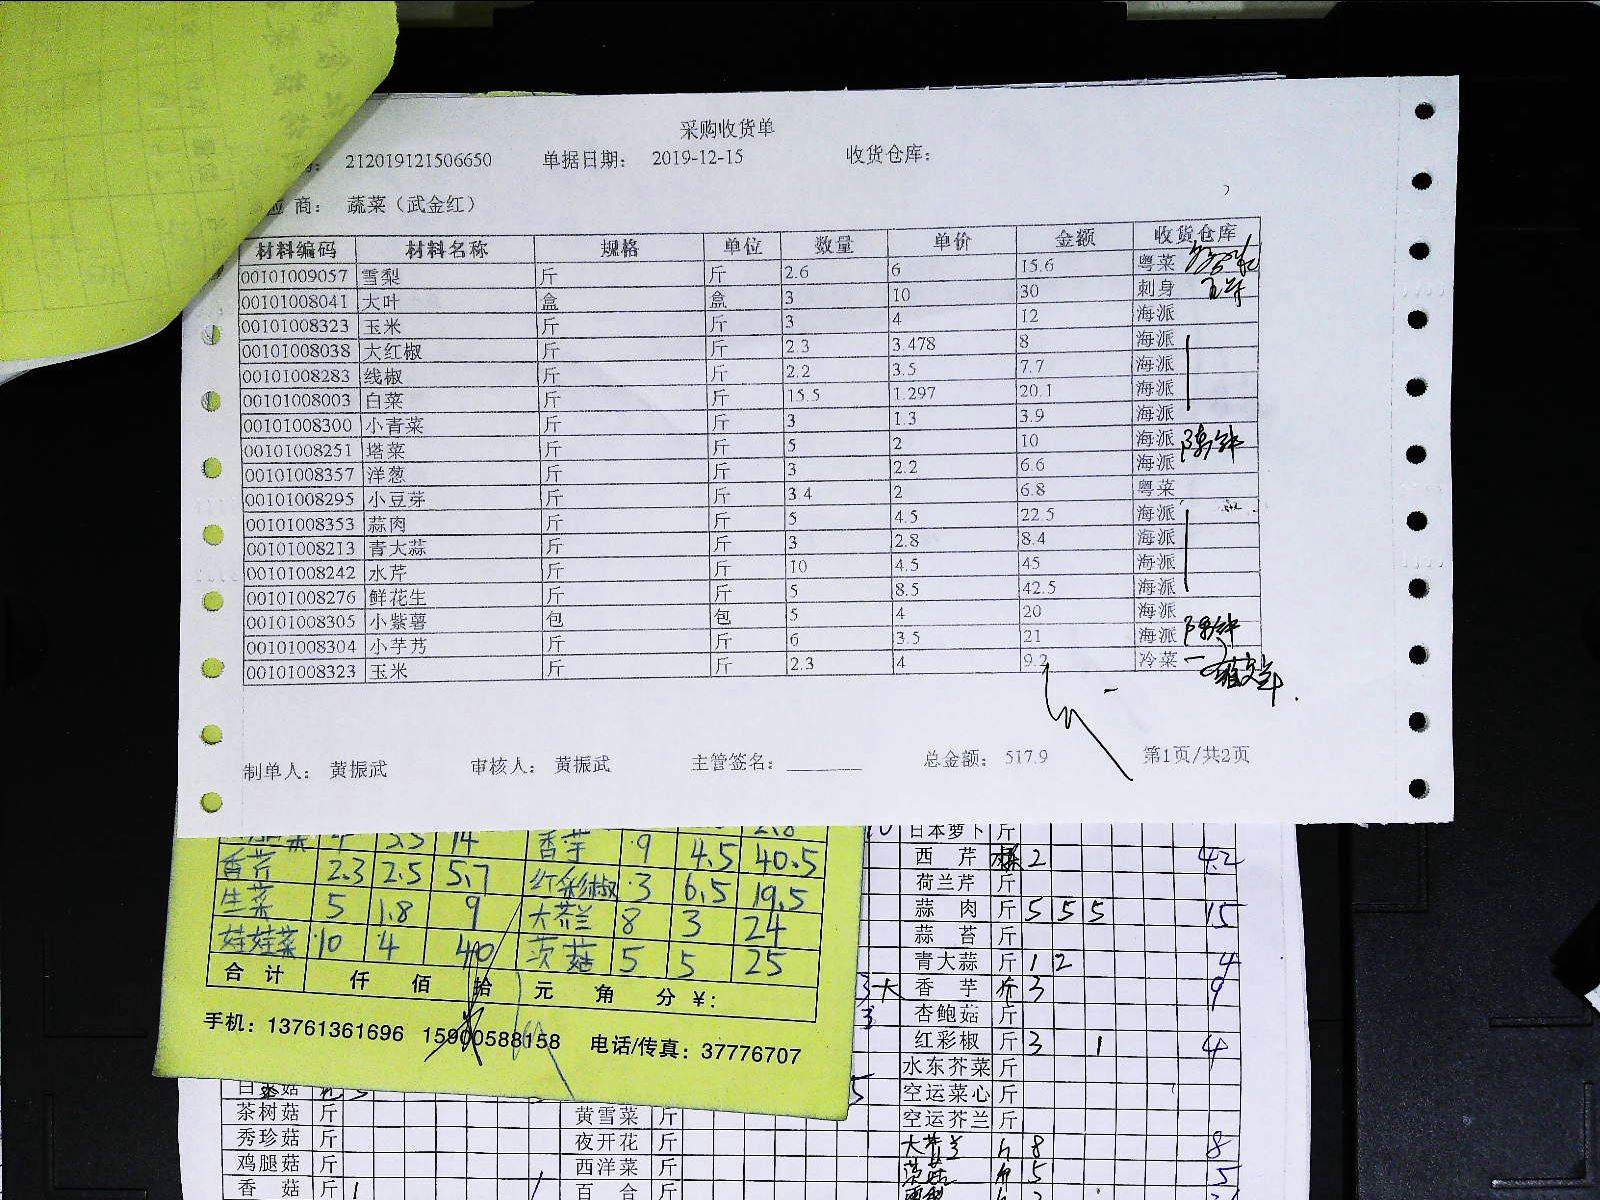 采购收货单
212019121506650 单据日期： 2019-12-15 收货仓库：
应 商： 蔬菜（武金红）
材料编码 材料名称 规格 单位 数量 单价 金额 收货仓库
00101009057 雪梨 斤 斤 2.6 6 15.6 粤菜
00101008041 大叶 盒 盒 3 10 30 刺身
00101008323 玉米 斤 斤 3 4 12 海派
00101008038 大红椒 斤 斤 2.3 3.478 8 海派
00101008283 线椒 斤 斤 2.2 3.5 7.7 海派
00101008003 白菜 斤 斤 15.5 1.297 20.1 海派
00101008300 小青菜 斤 斤 3 1.3 3.9 海派
00101008251 塔菜 斤 斤 5 2 10 海派
00101008357 洋葱 斤 斤 3 2.2 6.6 海派
00101008295 小豆芽 斤 斤 3.4 2 6.8 粤菜
00101008353 蒜肉 斤 斤 5 4.5 22.5 海派
00101008213 青大蒜 斤 斤 3 2.8 8.4 海派
00101008242 水芹 斤 斤 10 4.5 45 海派
00101008276 鲜花生 斤 斤 5 8.5 42.5 海派
00101008305 小紫薯 包 包 5 4 20 海派
00101008304 小芋艿 斤 斤 6 3.5 21 海派
00101008323 玉米 斤 斤 2.3 4 9.2 冷菜
制单人： 黄振武 审核人： 黄振武 主管签名： 总金额： 517.9 第1页/共2页
14 香芋 9 4.5 40.5
香芹 2.3 2.5 5.7 红彩椒 3 6.5 19.5
生菜 5 1.8 9 大芥兰 8 3 24
娃娃菜 10 4 40 茨菇 5 5 25
合 计 仟 佰 拾 元 角 分 ￥:
手机：13761361696 15900588158 电话/传真：37776707
日本萝卜 斤
西 芹 2 4.2
荷兰芹 斤
蒜 肉 斤 5 5 5 15
蒜 苔 斤
青大蒜 斤 1 2 4
香 芋 斤 3 9
杏鲍菇 斤
红彩椒 斤 3 1 4
水东芥菜 斤
空运菜心 斤
空运芥兰 斤
大芥兰 8 8
茨菇 5 5
茶树菇 斤 黄雪菜 斤
秀珍菇 斤 夜开花 斤
鸡腿菇 斤 西洋菜 斤
香 菇 斤 1 百 合 斤